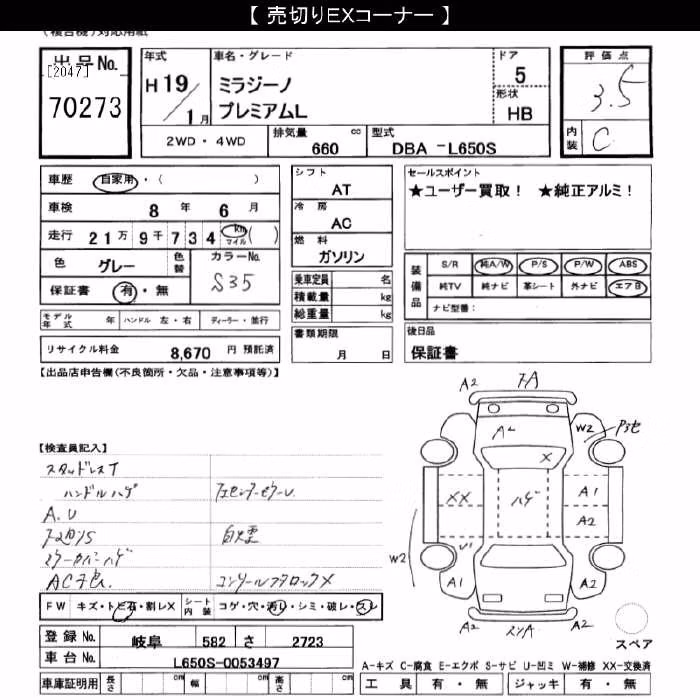 【 売切りEXコーナー 】
(複合機)対応用紙
出品No.
[2047]
70273
年式
H19/1月
車名・グレード
ミラジーノ
プレミアムL
ドア
5
形状
HB
2WD・4WD
排気量 660 cc
型式 DBA -L650S
評価点
3.5
内装 C
車歴 自家用・( )
車検 8 年 6 月
走行 21万9千734 km マイル ( )
色 グレー 色替
カラーNo.
S35
保証書 有・無
シフト
AT
冷房
AC
燃料
ガソリン
乗車定員 名
積載量 kg
総重量 kg
セールスポイント
★ユーザー買取！ ★純正アルミ！
装備品
S/R 純A/W P/S P/W ABS
純TV 純ナビ 革シート 外ナビ エアB
ナビ型番：
モデル年式 年 ハンドル 左・右 ディーラー・並行
リサイクル料金 8,670 円 預託済
書類期限
月 日
後日品
保証書
【出品店申告欄(不良箇所・欠品・注意事項等)】
【検査員記入】
スタッドレスT
ハンドルハゲ
A.U
AC
A2
FA
A2
A2
W2
X
XX
ハゲ
A1
A2
W2
U1
A1
A2
A2
A2
FW キズ・トビ石・割レX シート内装 コゲ・穴・汚レ・シミ・破レ・スレ
登録No. 岐阜 582 さ 2723
車台No. L650S-0053497
車庫証明用 長さ cm 幅 cm 高さ cm
スペア
A-キズ C-腐食 E-エクボ S-サビ U-凹ミ W-補修 XX-交換済
工具 有・無 ジャッキ 有・無